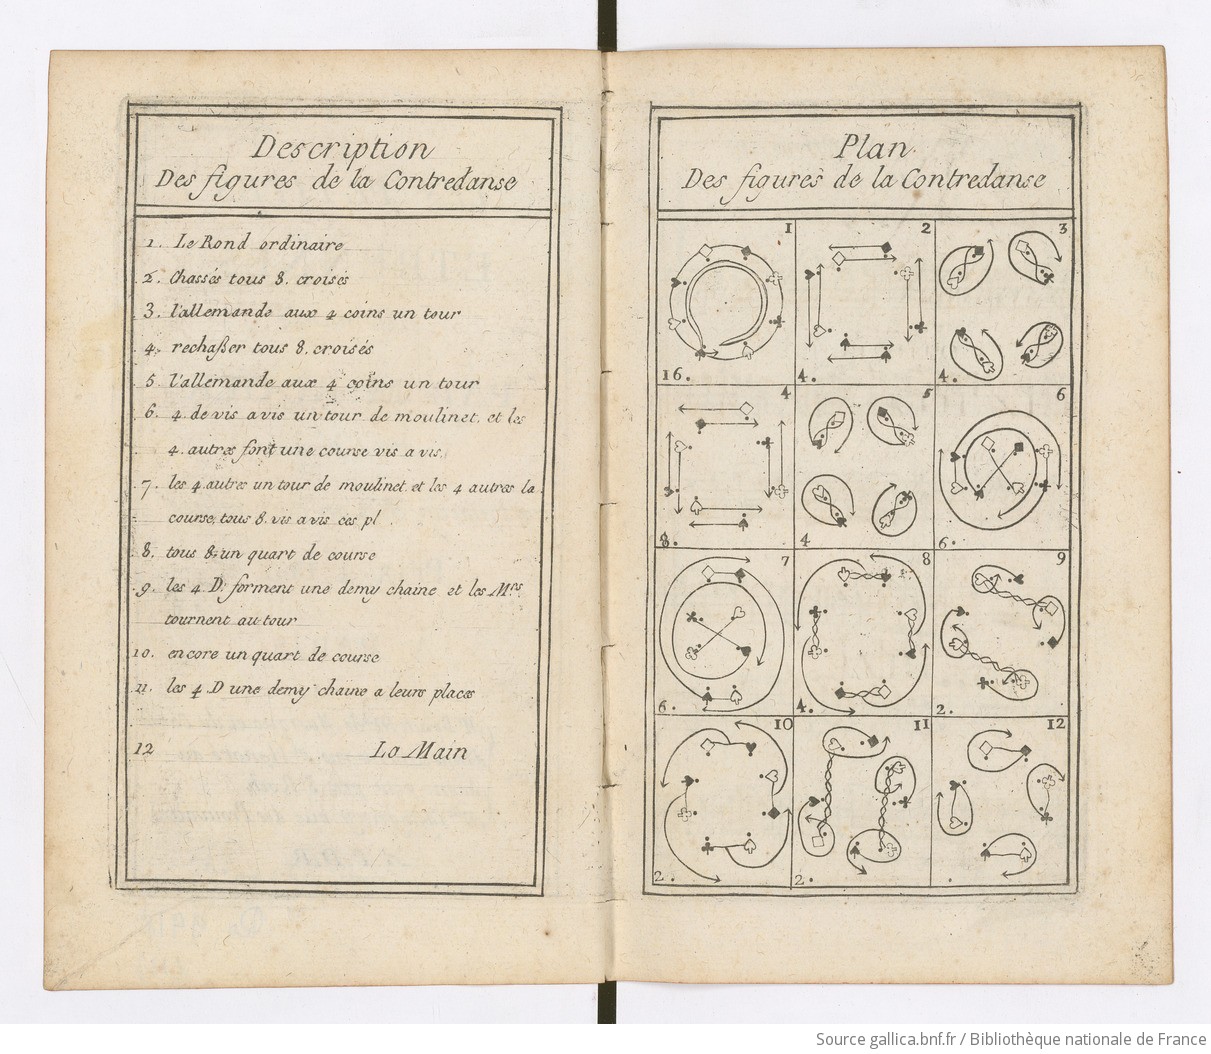 Description
Des figures de la Contredanse
1. Le Rond ordinaire
2. Chassés tous 8. croisés
3. l'allemande aux 4 coins un tour
4. rechasser tous 8. croisés
5. l'allemande aux 4 coins un tour
6. 4. de vis a vis un tour de moulinet. et les
4. autres font une course vis a vis.
7. les 4. autres un tour de moulinet. et les 4 autres la
course, tous 8. vis a vis ces pl.
8. tous 8. un quart de course
9. les 4 D. forment une demy chaine et les Mrs
tournent au tour
10. encore un quart de course
11. les 4 D une demy chaine a leurs places
12 La Main
Plan
Des figures de la Contredanse
1 2 3
16. 4. 4.
4 5 6
8. 4 6.
7 8 9
6. 4. 2.
10 11 12
2. 2.
Source gallica.bnf.fr / Bibliothèque nationale de France